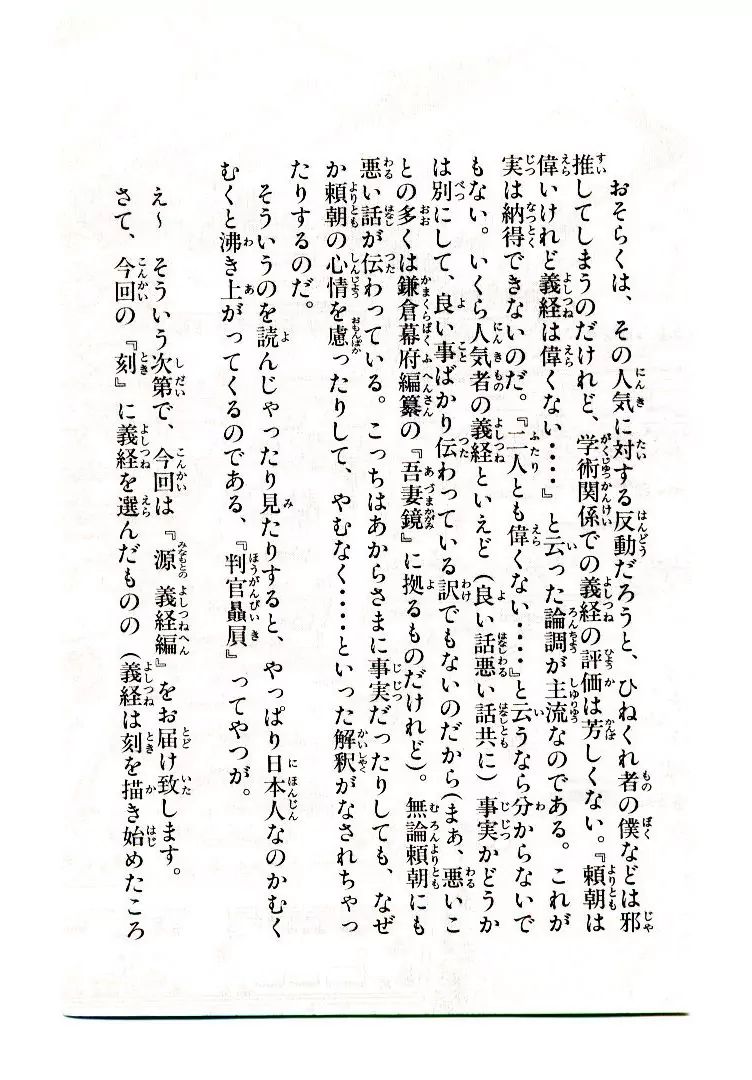 おそらくは、その人気に対する反動だろうと、ひねくれ者の僕などは邪
推してしまうのだけれど、学術関係での義経の評価は芳しくない。『頼朝は
偉いけれど義経は偉くない‥‥』と云った論調が主流なのである。これが
実は納得できないのだ。『二人とも偉くない‥‥』と云うなら分からないで
もない。いくら人気者の義経といえど（良い話悪い話共に）事実かどうか
は別にして、良い事ばかり伝わっている訳でもないのだから（まぁ、悪いこ
との多くは鎌倉幕府編纂の『吾妻鏡』に拠るものだけれど）。無論頼朝にも
悪い話が伝わっている。こっちはあからさまに事実だったりしても、なぜ
か頼朝の心情を慮ったりして、やむなく‥‥といった解釈がなされちゃっ
たりするのだ。
そういうのを読んじゃったり見たりすると、やっぱり日本人なのかむく
むくと沸き上がってくるのである、『判官贔屓』ってやつが。
え〜　そういう次第で、今回は『源　義経編』をお届け致します。
さて、今回の『刻』に義経を選んだものの（義経は刻を描き始めたころ